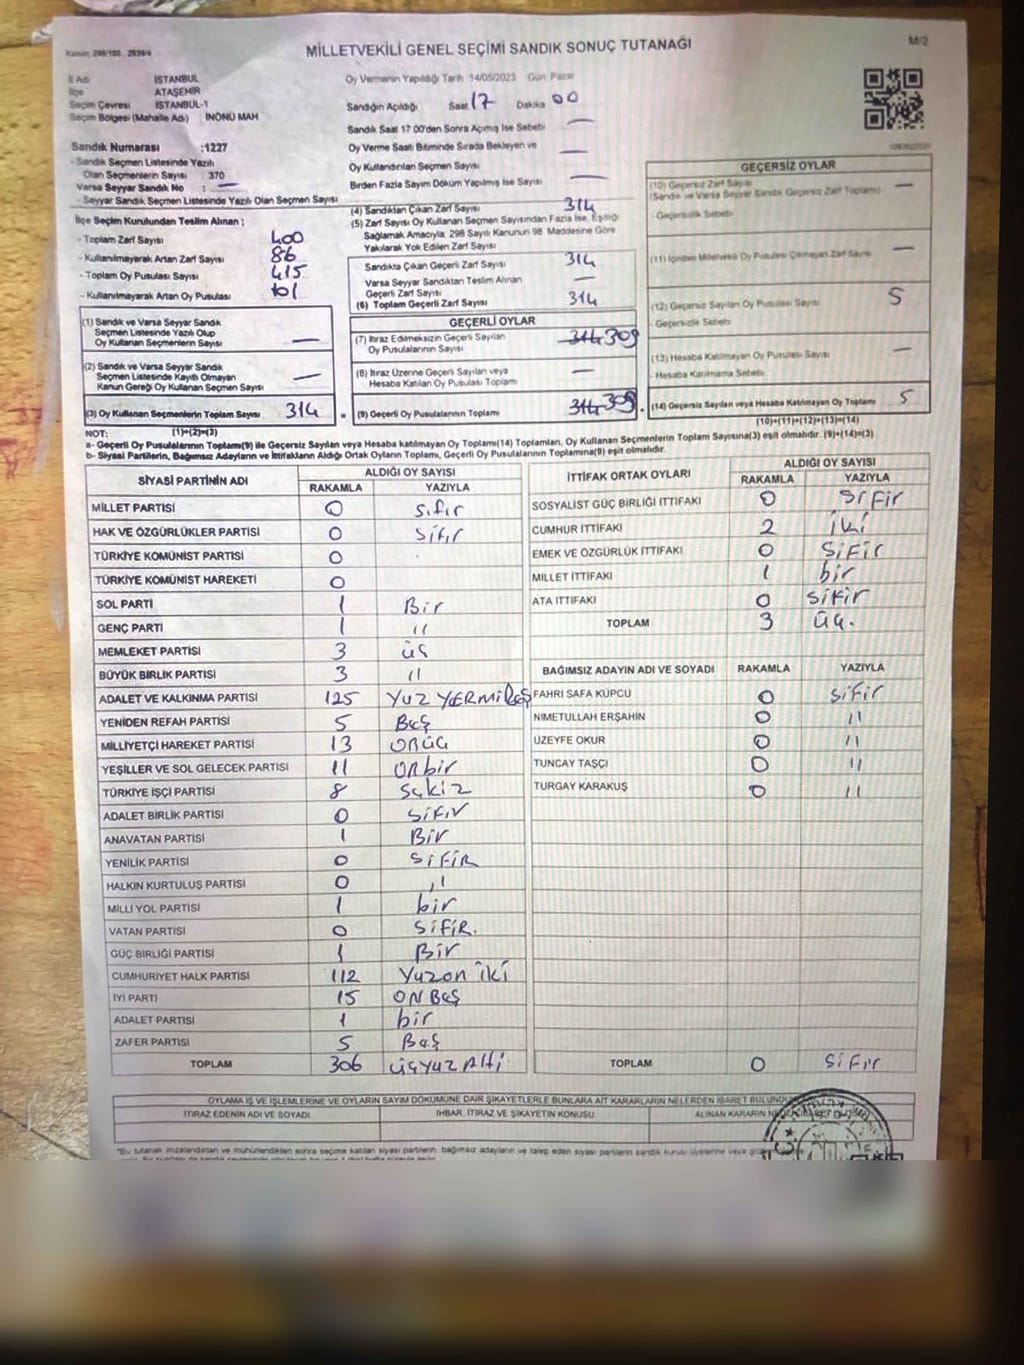 Kanun: 298/100 , 2839/4
MİLLETVEKİLİ GENEL SEÇİMİ SANDIK SONUÇ TUTANAĞI
M/2
İl Adı İSTANBUL
İlçe ATAŞEHİR
Seçim Çevresi İSTANBUL-1
Seçim Bölgesi (Mahalle Adı) İNÖNÜ MAH
Sandık Numarası :1227
- Sandık Seçmen Listesinde Yazılı
Olan Seçmenlerin Sayısı 370
Varsa Seyyar Sandık No : —
- Seyyar Sandık Seçmen Listesinde Yazılı Olan Seçmen Sayısı
İlçe Seçim Kurulundan Teslim Alınan ;
- Toplam Zarf Sayısı 400
- Kullanılmayarak Artan Zarf Sayısı 86
- Toplam Oy Pusulası Sayısı 415
- Kullanılmayarak Artan Oy Pusulası 101
(1) Sandık ve Varsa Seyyar Sandık
Seçmen Listesinde Yazılı Olup
Oy Kullanan Seçmenlerin Sayısı —
(2) Sandık ve Varsa Seyyar Sandık
Seçmen Listesinde Kayıtlı Olmayan
Kanun Gereği Oy Kullanan Seçmen Sayısı —
(3) Oy Kullanan Seçmenlerin Toplam Sayısı 314
(1)+(2)=(3)
Oy Vermenin Yapıldığı Tarih 14/05/2023 Gün Pazar
Sandığın Açıldığı Saat 17 Dakika 00
Sandık Saat 17 00'den Sonra Açımış İse Sebebi —
Oy Verme Saati Bitiminde Sırada Bekleyen ve
Oy Kullandırılan Seçmen Sayısı —
Birden Fazla Sayım Döküm Yapılmış İse Sayısı —
(4) Sandıktan Çıkan Zarf Sayısı 314
(5) Zarf Sayısı Oy Kullanan Seçmen Sayısından Fazla İse, Eşitliği
Sağlamak Amacıyla, 298 Sayılı Kanunun 98. Maddesine Göre
Yakılarak Yok Edilen Zarf Sayısı
Sandıkta Çıkan Geçerli Zarf Sayısı 314
Varsa Seyyar Sandıktan Teslim Alınan
Geçerli Zarf Sayısı —
(6) Toplam Geçerli Zarf Sayısı 314
GEÇERLİ OYLAR
(7) İtiraz Edilmeksizin Geçerli Sayılan
Oy Pusulalarının Sayısı 314 309
(8) İtiraz Üzerine Geçerli Sayılan veya
Hesaba Katılan Oy Pusulası Toplamı —
(9) Geçerli Oy Pusulalarının Toplamı 314 309
GEÇERSİZ OYLAR
(10) Geçersiz Zarf Sayısı
(Sandık ve Varsa Seyyar Sandık Geçersiz Zarf Toplamı) —
- Geçersizlik Sebebi
(11) İçinden Milletvekili Oy Pusulası Çıkmayan Zarf Sayısı —
(12) Geçersiz Sayılan Oy Pusulası Sayısı 5
- Geçersizlik Sebebi
(13) Hesaba Katılmayan Oy Pusulası Sayısı —
- Hesaba Katılmama Sebebi
(14) Geçersiz Sayılan veya Hesaba Katılmayan Oy Toplamı 5
(10)+(11)+(12)+(13)=(14)
NOT:
a- Geçerli Oy Pusulalarının Toplamı(9) ile Geçersiz Sayılan veya Hesaba katılmayan Oy Toplamı(14) Toplamları, Oy Kullanan Seçmenlerin Toplam Sayısına(3) eşit olmalıdır. (9)+(14)=(3)
b- Siyasi Partilerin, Bağımsız Adayların ve İttifakların Aldığı Ortak Oyların Toplamı, Geçerli Oy Pusulalarının Toplamına(9) eşit olmalıdır.
SİYASİ PARTİNİN ADI ALDIĞI OY SAYISI
RAKAMLA YAZIYLA
MİLLET PARTİSİ 0 sıfır
HAK VE ÖZGÜRLÜKLER PARTİSİ 0 sıfır
TÜRKİYE KOMÜNİST PARTİSİ 0
TÜRKİYE KOMÜNİST HAREKETİ 0
SOL PARTİ 1 Bir
GENÇ PARTİ 1 "
MEMLEKET PARTİSİ 3 üç
BÜYÜK BİRLİK PARTİSİ 3 "
ADALET VE KALKINMA PARTİSİ 125 YUZ YERMİBEŞ
YENİDEN REFAH PARTİSİ 5 Beş
MİLLİYETÇİ HAREKET PARTİSİ 13 ONÜÇ
YEŞİLLER VE SOL GELECEK PARTİSİ 11 ONbir
TÜRKİYE İŞÇİ PARTİSİ 8 Sekiz
ADALET BİRLİK PARTİSİ 0 SiFıR
ANAVATAN PARTİSİ 1 Bir
YENİLİK PARTİSİ 0 SİFİR
HALKIN KURTULUŞ PARTİSİ 0 "
MİLLİ YOL PARTİSİ 1 bir
VATAN PARTİSİ 0 SiFiR.
GÜÇ BİRLİĞİ PARTİSİ 1 Bir
CUMHURİYET HALK PARTİSİ 112 Yuzon iki
İYİ PARTİ 15 ON Beş
ADALET PARTİSİ 1 bir
ZAFER PARTİSİ 5 Beş
TOPLAM 306 üçyuz Altı
İTTİFAK ORTAK OYLARI ALDIĞI OY SAYISI
RAKAMLA YAZIYLA
SOSYALİST GÜÇ BİRLİĞİ İTTİFAKI 0 SıFır
CUMHUR İTTİFAKI 2 İKİ
EMEK VE ÖZGÜRLÜK İTTİFAKI 0 SİFİR
MİLLET İTTİFAKI 1 bir
ATA İTTİFAKI 0 sıfır
TOPLAM 3 üç.
BAĞIMSIZ ADAYIN ADI VE SOYADI RAKAMLA YAZIYLA
FAHRİ SAFA KÜPCÜ 0 SiFir
NİMETULLAH ERŞAHİN 0 "
ÜZEYFE OKUR 0 "
TUNCAY TAŞÇI 0 "
TURGAY KARAKUŞ 0 "
TOPLAM 0 SiFır
OYLAMA İŞ VE İŞLEMLERİNE VE OYLARIN SAYIM DÖKÜMÜNE DAİR ŞİKAYETLERLE BUNLARA AİT KARARLARIN NELERDEN İBARET BULUNDU
İTİRAZ EDENİN ADI VE SOYADI İHBAR, İTİRAZ VE ŞİKAYETİN KONUSU ALINAN KARARIN
*Bu tutanak imzalandıktan ve mühürlendikten sonra seçime katılan siyasi partilerin, bağımsız adayların ve talep eden siyasi partilerin sandık kurulu üyelerine veya